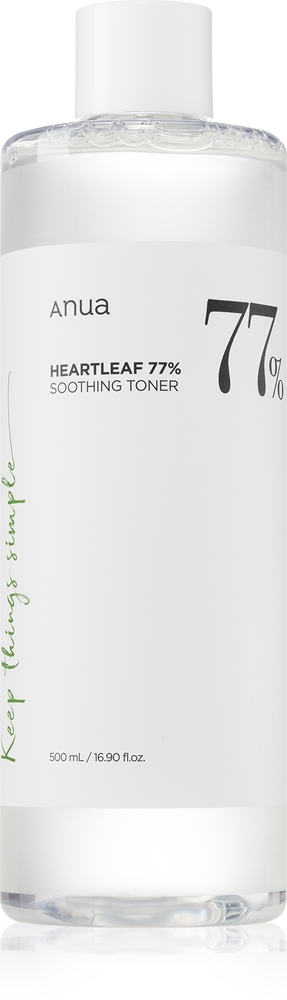 Anua
77%
HEARTLEAF 77%
SOOTHING TONER
Keep things simple
500 mL / 16.90 fl.oz.